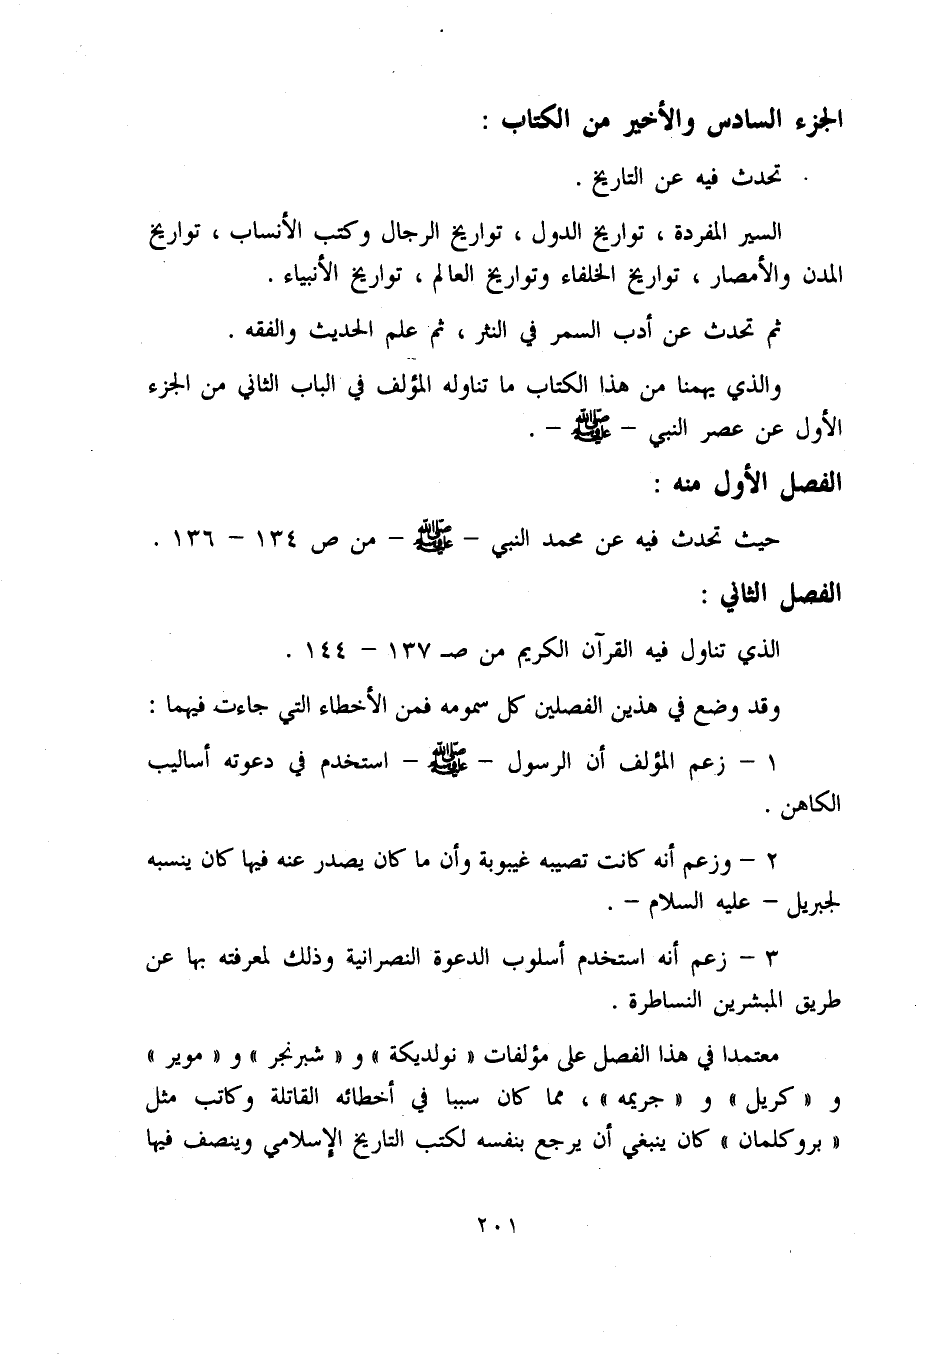 الجزء السادس والأخير من الكتاب :
تحدث فيه عن التاريخ .
السير المفردة ، تواريخ الدول ، تواريخ الرجال وكتب الأنساب ، تواريخ
المدن والأمصار ، تواريخ الخلفاء وتواريخ العالم ، تواريخ الأنبياء .
ثم تحدث عن أدب السمر في النثر ، ثم علم الحديث والفقه .
والذي يهمنا من هذا الكتاب ما تناوله المؤلف في الباب الثاني من الجزء
الأول عن عصر النبي – ﷺ – .
الفصل الأول منه :
حيث تحدث فيه عن محمد النبي – ﷺ – من ص ١٣٤ – ١٣٦ .
الفصل الثاني :
الذي تناول فيه القرآن الكريم من صـ ١٣٧ – ١٤٤ .
وقد وضع في هذين الفصلين كل سمومه فمن الأخطاء التي جاءت فيهما :
١ – زعم المؤلف أن الرسول – ﷺ – استخدم في دعوته أساليب
الكاهن .
٢ – وزعم أنه كانت تصيبه غيبوبة وأن ما كان يصدر عنه فيها كان ينسبه
لجبريل – عليه السلام – .
٣ – زعم أنه استخدم أسلوب الدعوة النصرانية وذلك لمعرفته بها عن
طريق المبشرين النساطرة .
معتمدا في هذا الفصل على مؤلفات « نولديكة » و « شبرنجر » و « موير »
و « كريل » و « جريمه » ، مما كان سببا في أخطائه القاتلة وكاتب مثل
« بروكلمان » كان ينبغي أن يرجع بنفسه لكتب التاريخ الإسلامي وينصف فيها
٢٠١